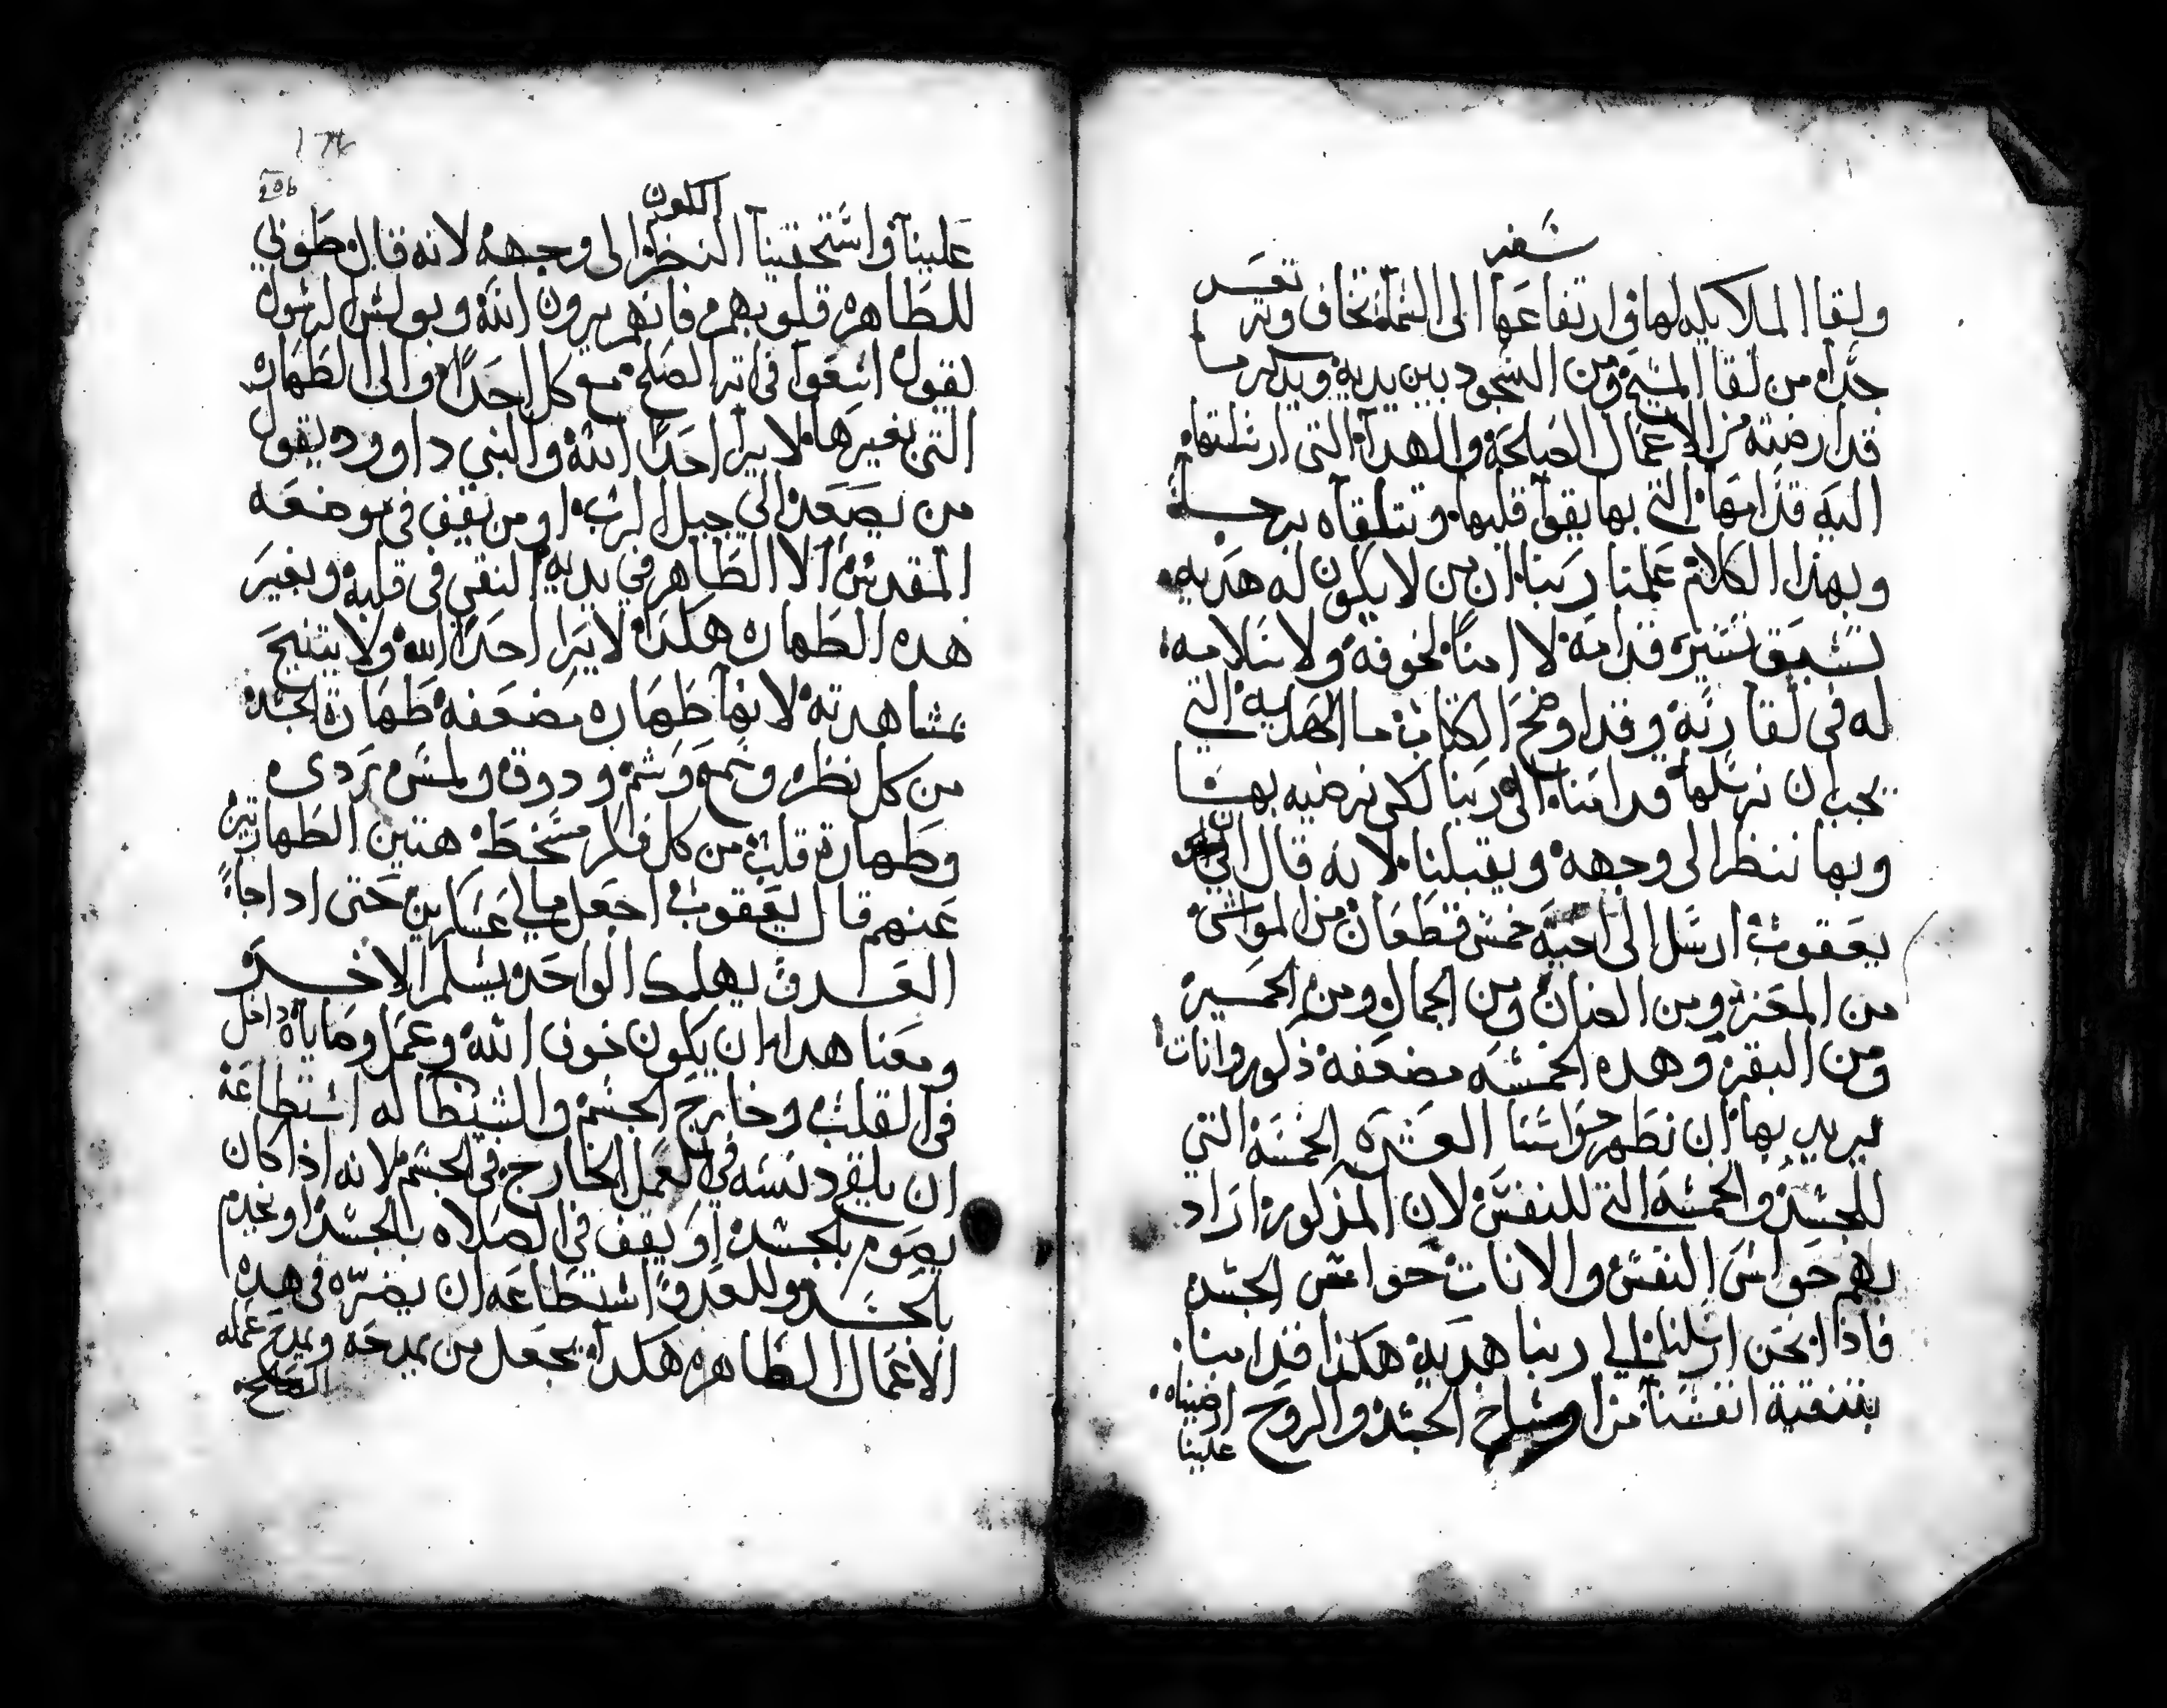 سفر
ولقا الملايكه لها في ارتفاعها الى السما تخاف وترتعد
جدا من لقا المسيح ومن السجود بين يديه ويذكر ما
قد ارضته من الاعمال الصالحة والهدآة التي ارسلتها
اليه قدامها التي بها يقوآ قلبها وتتلقاه برجا
وبهذا الكلام علمنا ربنا ان من لا يكون له هديه
تسبق تسير قدامه لا امنا لخوفه ولا سلامه
له في لقا ربه وقد اوضح الكتاب ما الهديه التي
يجب ان نرسلها قدامنا الى ربنا لكي نرضيه بها
وبها ننظر الى وجهه ويقبلنا لانه قال ان
يعقوب ارسل الى اخيه خمس قطعان من المواشي
من المعز ومن الضان ومن الجمال ومن الحمير
ومن البقر وهذه الخمسه مضعفه ذكور واناث
يريد بها ان نطهر حواسنا العشره الخمسه التي
للجسد والخمسه التي للنفس لان المذكور اراد
بهم حواس النفس والاناث حواس الجسد
فاذا نحن ارسلنا الى ربنا هديه هكذا قدامنا
بتنقية انفسنا من اوساخ الجسد والروح ارضيناه
علينا
174
206
التكوين
علينا واستحقينا النظر الى وجهه لانه قال طوبى
للطاهره قلوبهم فانهم يرون الله وبولس الرسول
يقول اسعوا في اتر الصلح مع كل احدا والى الطهاره
التي بغيرها لا يرا احدا الله والنبي داوود يقول
من يصعد الى جبل الرب او من يقف في موضعه
المقدس الا الطاهر في يديه النقي في قلبه وبغير
هذه الطهاره هكدا لا يرا احدا الله ولا يتنيح
بمشاهدته لانها طهاره مضعفه طهارة الجسد
من كل نظر وسمع وشم ودوق ولمس ردى
وطهارة قلب من كل فكر مسخط هتين الطهارتين
عنهم قال يعقوب اجعل مالي عسكرين حتى اد اجا
العدو يهلك الواحد يسلم الاخر
ومعنا هدا ان يكون خوف الله وعمل وصاياه داخل
في القلب وخارج الجسم والشيطا له استطاعه
ان يلقي دنسه في العمل الخارج في الجسم لانه اذا كان
يصوم بالجسد او يقف في الصلاه بالجسد او يخدم
بالجسد وللعدو استطاعه ان يضره في هده
الاعمال الظاهره هكدا يجعل من يمدحه ويمدح عمله
الصالح